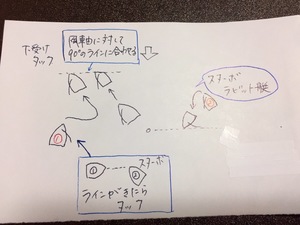 下受け
タック
風軸に対して
90°のラインに合わせる
スターボ
ラビット艇
①
③
①
スターボ
②
ラインがきたら
タック